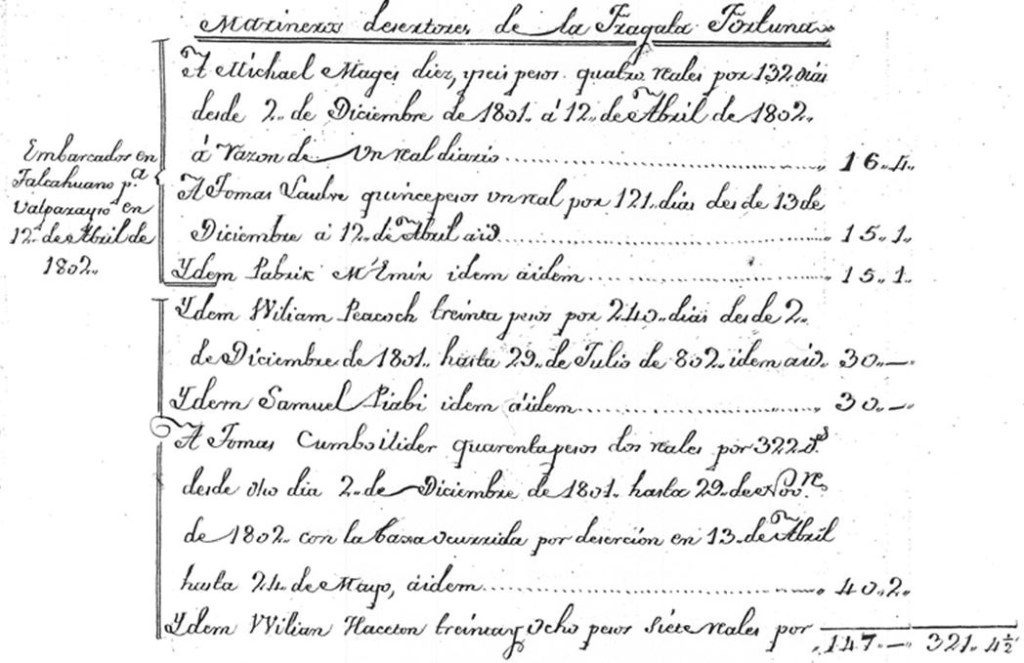 Marineros desertores de la Fragata Fortuna
A Michael Mages diez, y seis pesos quatro reales por 132 dias
desde 2,, de Diciembre de 1801,, á 12,, de Abril de 1802,,
á razon de un real diario.......... 16,,4,,
Embarcados en
Talcahuano p.ª
Valparayso en
12,, de Abril de
1802,,
A Tomas quince pesos un real por 121,, dias desde 13 de
Diciembre á 12,, de Abril á id.......... 15,,1,,
Ydem Patrix M.Emix idem á idem.......... 15,,1,,
Ydem Wiliam Peacoch treinta pesos por 240,, dias desde 2,,
de Diciembre de 1801,, hasta 29,, de Julio de 802,, idem á id,, 30,,—,,
Ydem Samuel Piabi idem á idem.......... 30,,—,,
A Tomas Cumboilider quarenta pesos dos reales por 322 d.s
desde dho dia 2,, de Diciembre de 1801,, hasta 29,, de Nov.re
de 1802,, con la baxa ocurrida por desercion en 13,, de Abril
hasta 24,, de Mayo, á idem.......... 40,,2,,
Ydem Wilian Haceton treinta y ocho pesos siete reales por
147,,— 321,,4½